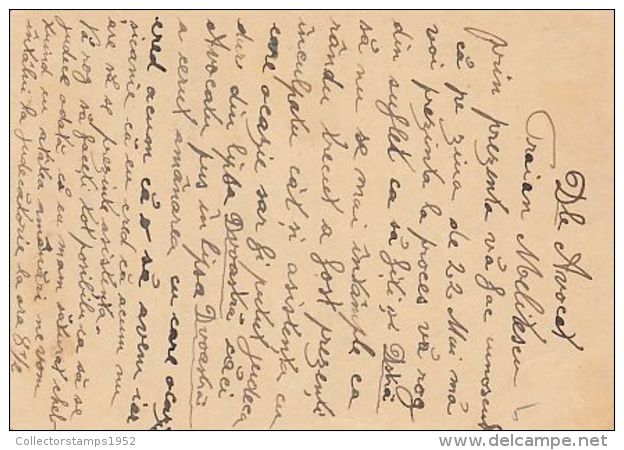 Dle Avocat
Traian Meliksen
prin prezenta vă fac cunoscut
că pe ziua de 22 Mai mă
voi prezinta la proces vă rog
din suflet ca să fiți și Dstră
să nu se mai întâmple ca
rându trecut a fost prezenți
inculpatu cât și asistenta cu
care ocazie sar fi putut judeca
dar din lipsa Dvoastră căci
avocatu pus în lipsa Dvoastră
a cerut amânarea cu care ocaz
cred acum că o să avem iar
șicanie că eu cred că acum nu
are să se prezinte asistenta
Vă rog să faceți tot posibilu ca să se
judece odată că eu mam săturat chel
tuind cu atâtea amânări ne vom
întâlni la judecătorie la ora 8 1/2
Collectorstamps1952
www.delcampe.net